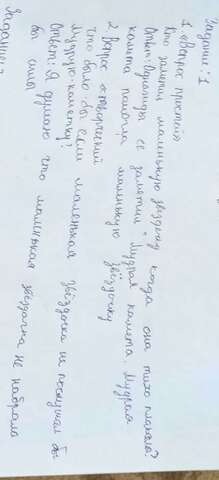 Задание: 1
1. «Вопрос простой»
Кто заметил маленькую звёздочку когда она тихо плакала?
Ответ: Однажды её заметила "Мудрая комета. Мудрая
комета помогла маленькую звёздочку
2 Вопрос «творческий
Что было бы если маленькая звёздочка не послушал бы
Мудрую комету?
Ответ: Я думаю что маленькая звёздочка не набрала
бы силы
Задание: 2